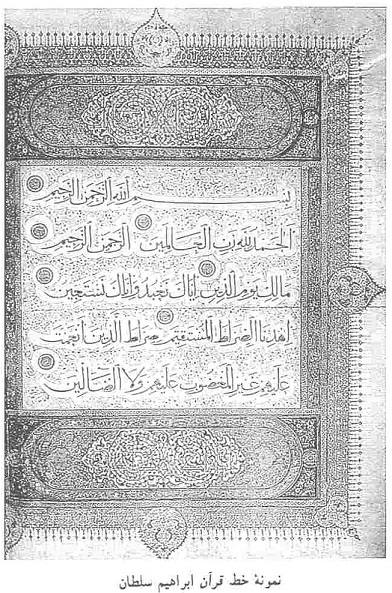 بسم الله الرحمن الرحيم
الحمد لله رب العالمين الرحمن الرحيم
مالك يوم الدين اياك نعبد واياك نستعين
اهدنا الصراط المستقيم صراط الذين انعمت
عليهم غير المغضوب عليهم ولا الضالين
نمونهٔ خط قرآن ابراهیم سلطان